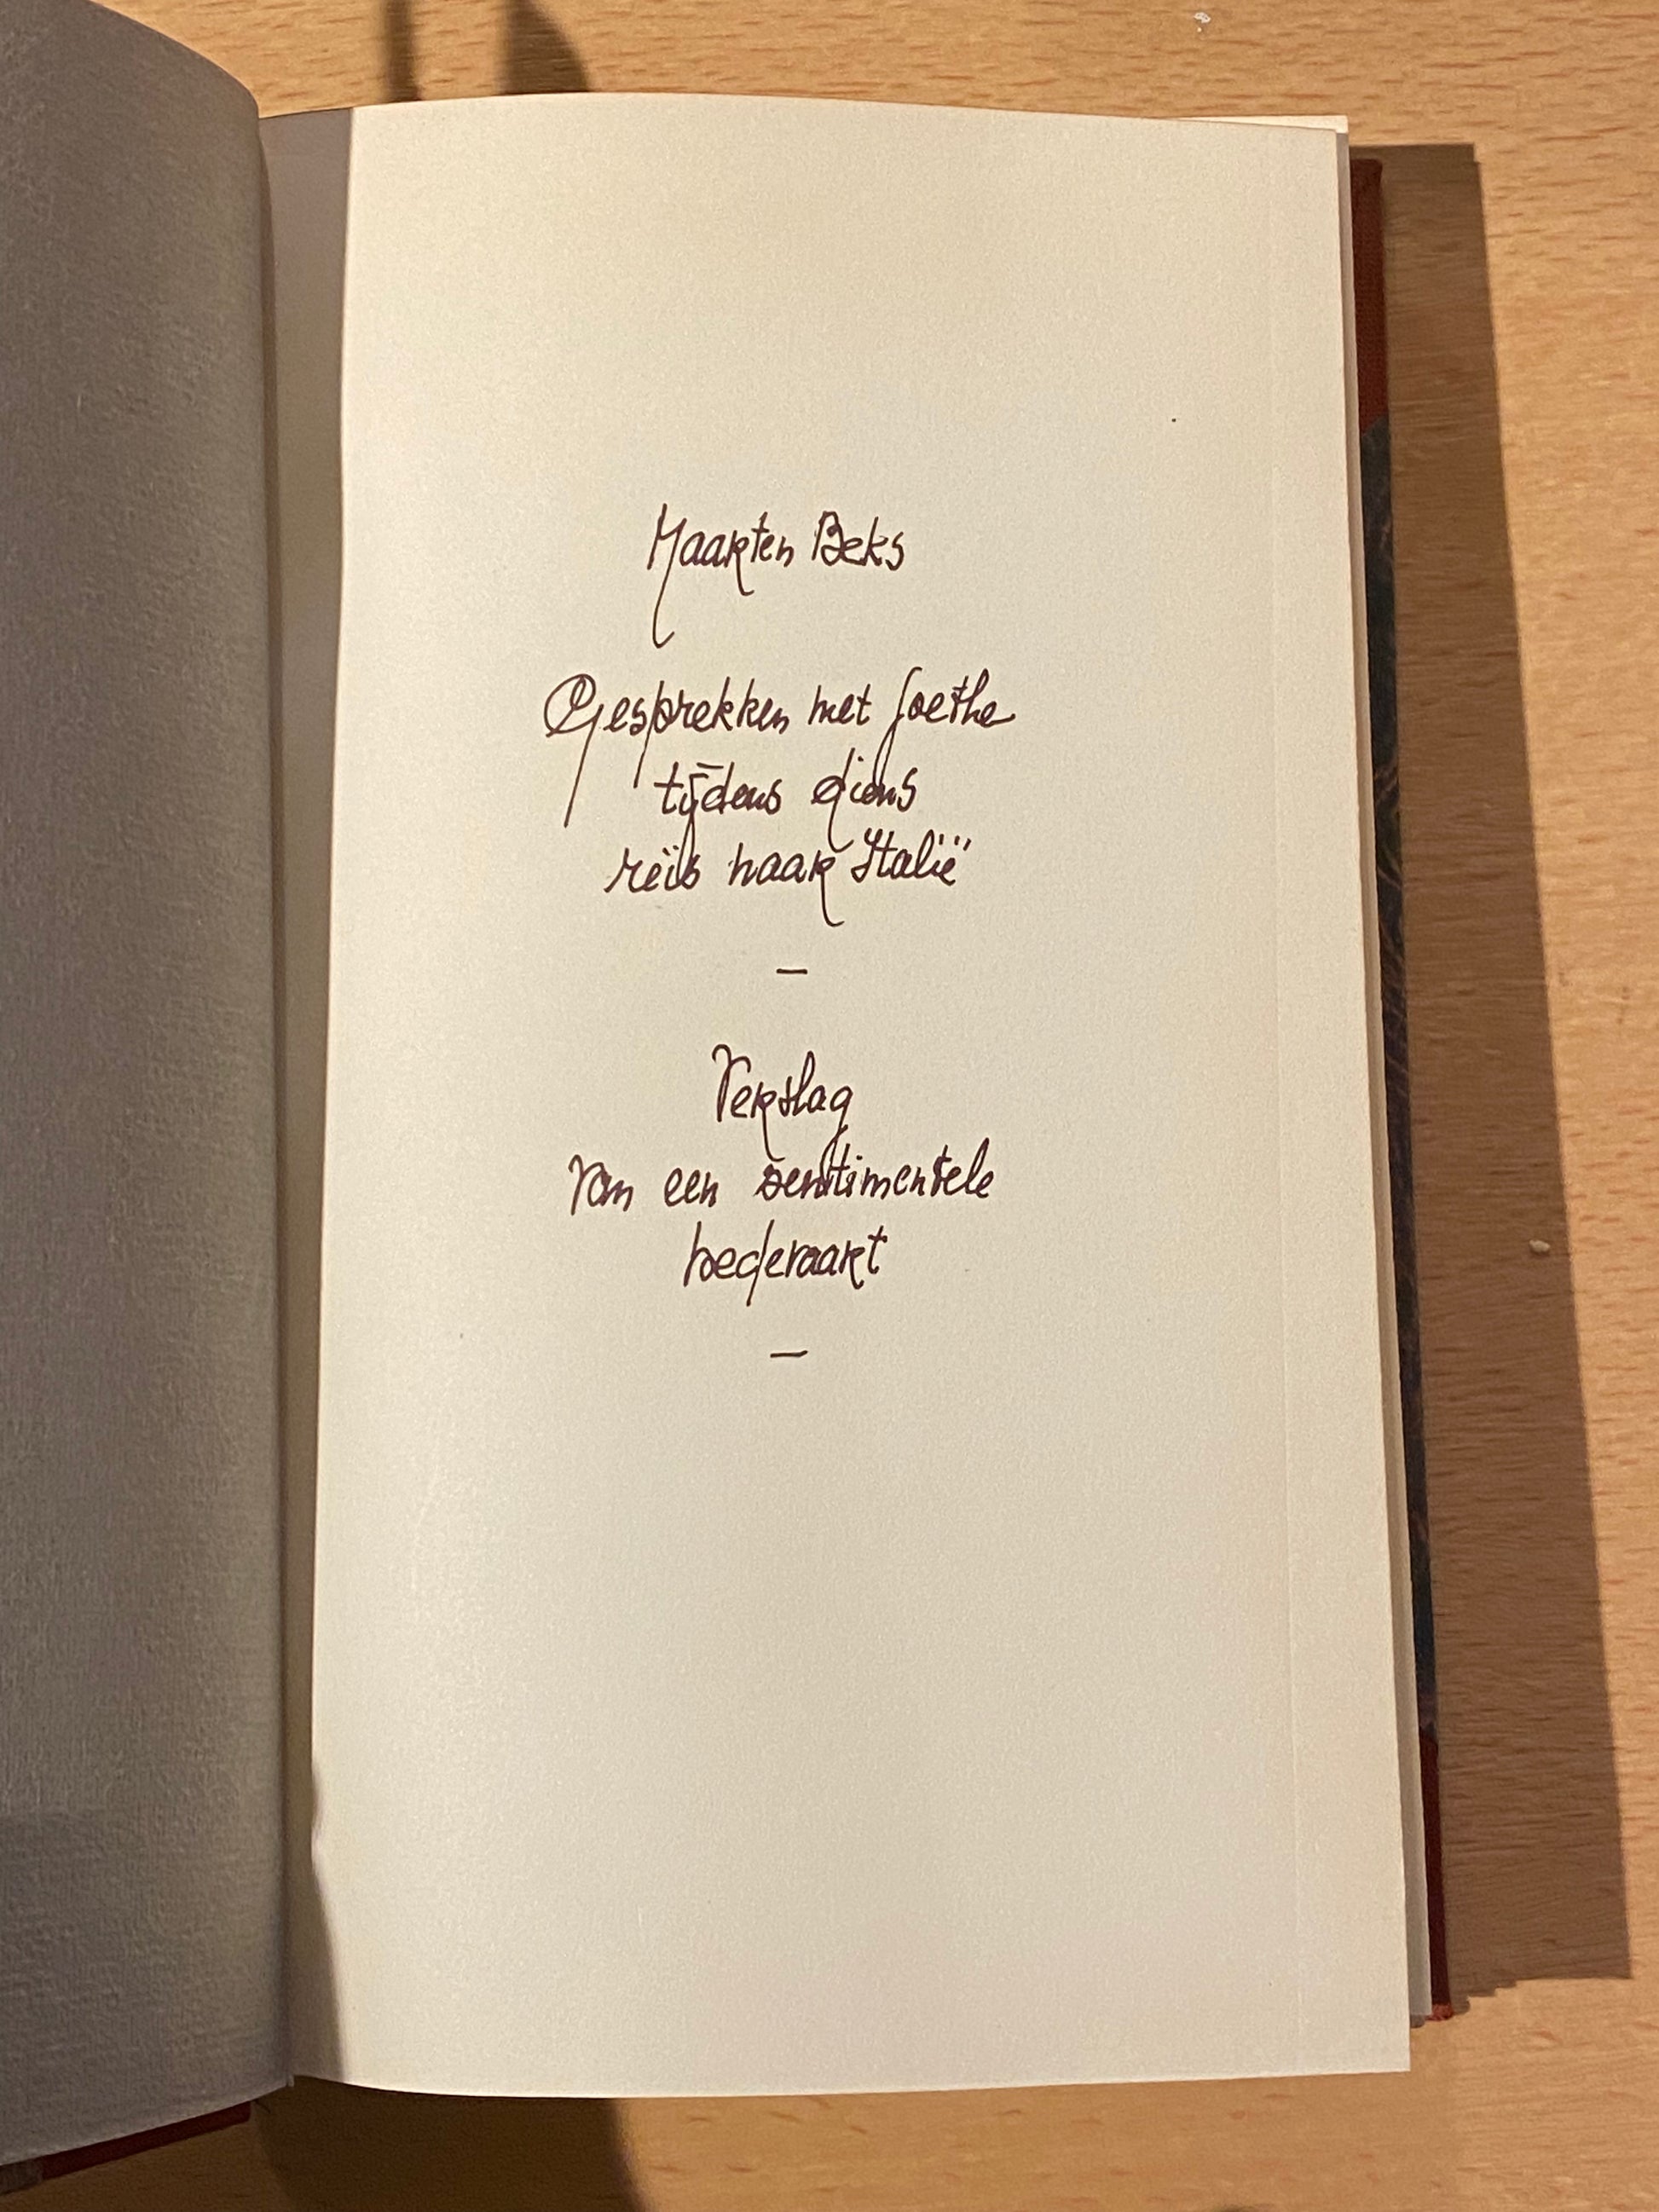 Maarten Beks
Gesprekken met Goethe
tijdens diens
reis naar Italië
—
Verslag
van een sentimentele
bedevaart
—